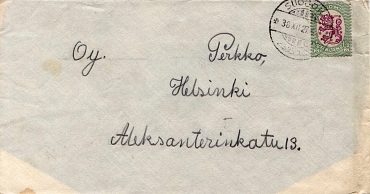 Oy. Perkko,
Helsinki
Aleksanterinkatu 13.